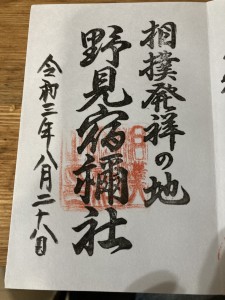 相撲発祥の地
野見宿禰社
令和三年八月二十八日